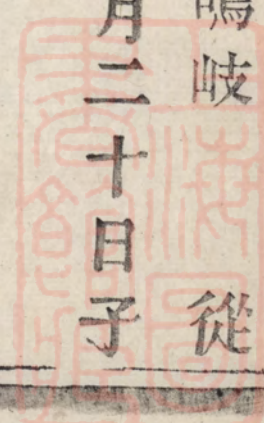 鳴岐　從
月二十日子